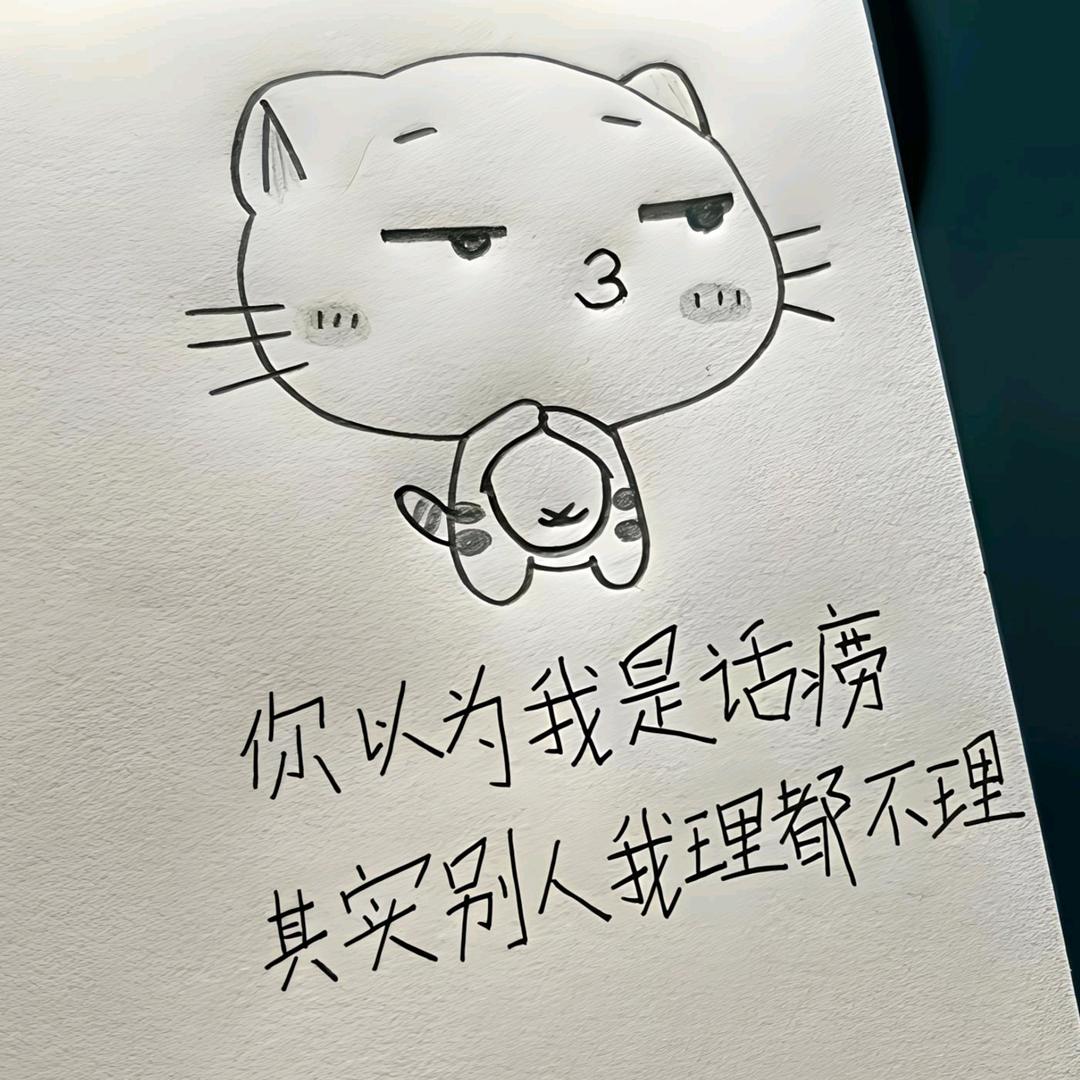 你以为我是话痨
其实别人我理都不理